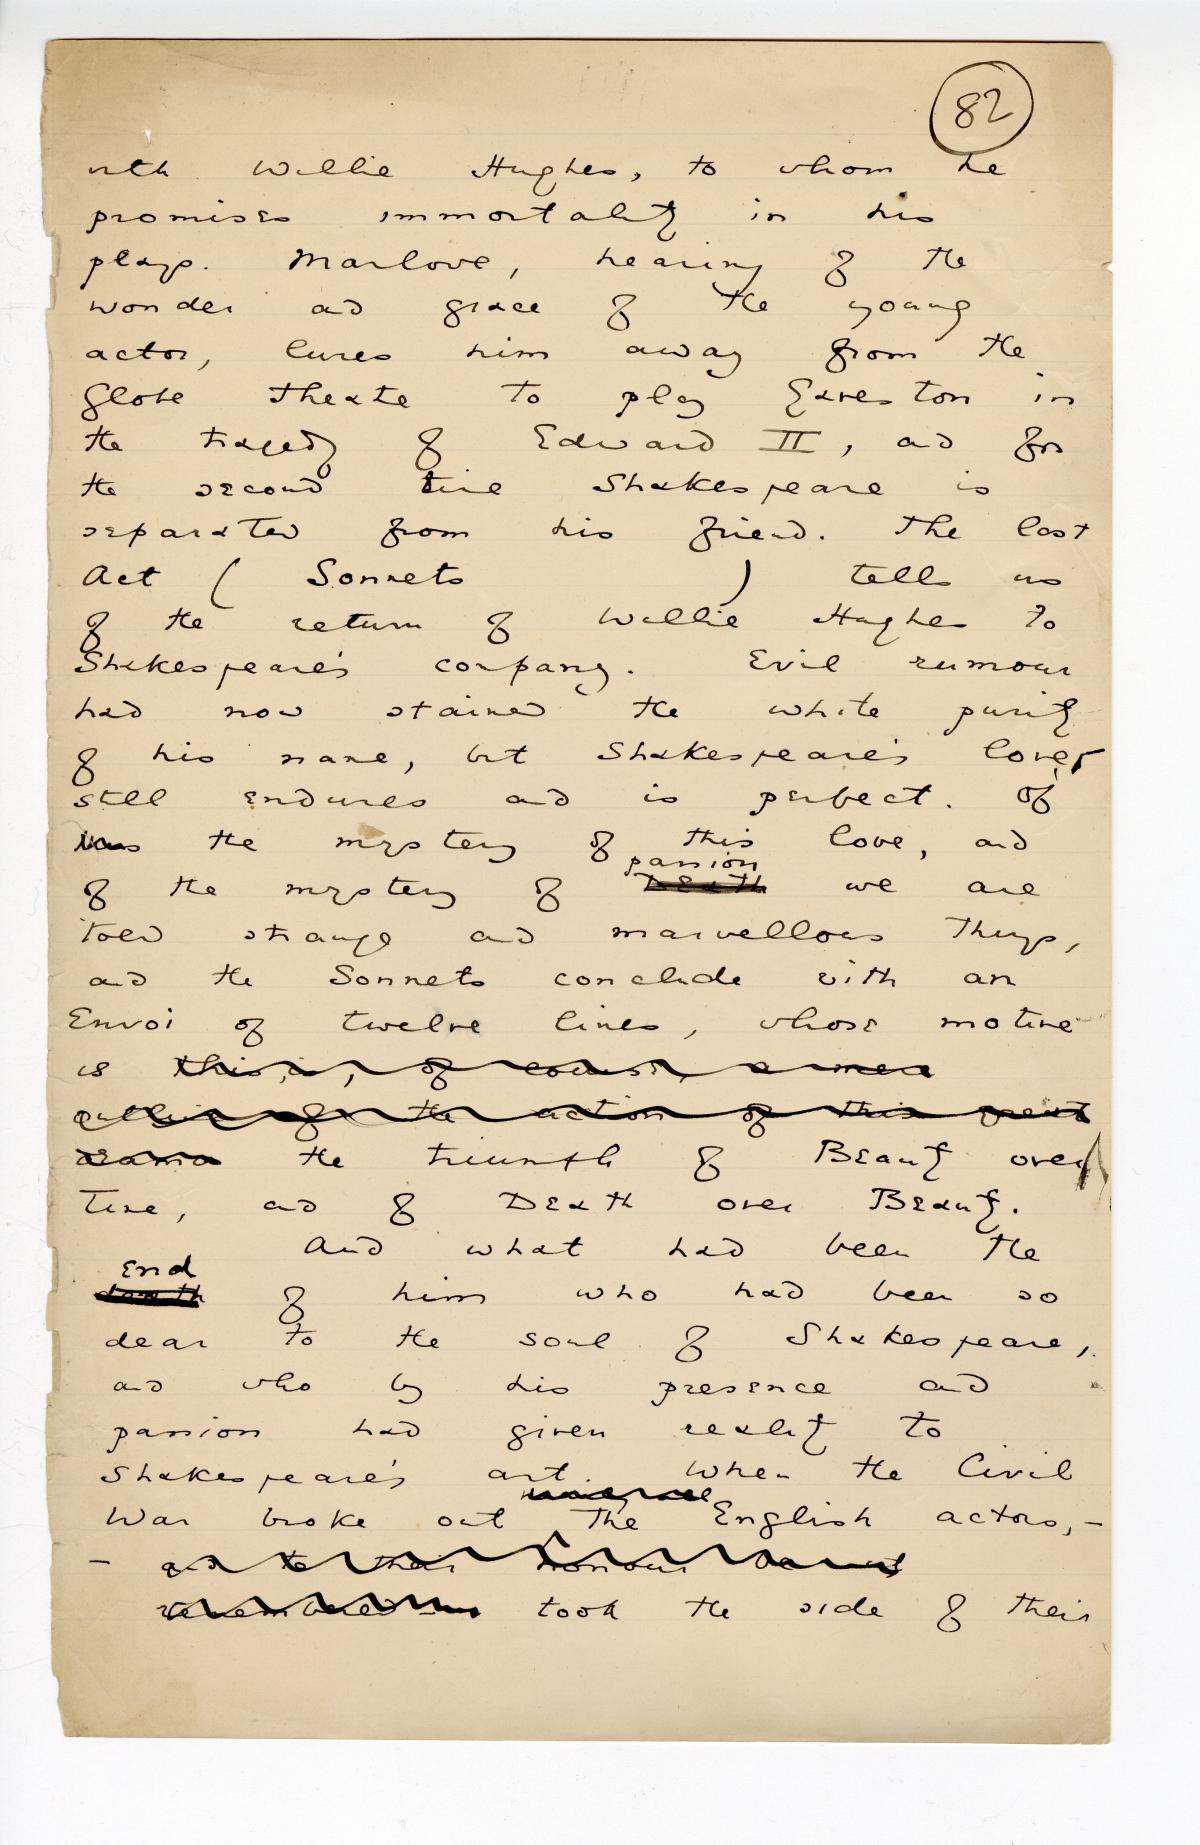 82
with Willie Hughes, to whom he
promises immortality in his
plays. Marlowe, hearing of the
wonder and grace of the young
actor, lures him away from the
Globe Theatre to play Gaveston in
the tragedy of Edward II, and for
the second time Shakespeare is
separated from his friend. The last
Act ( Sonnets ) tells us
of the return of Willie Hughes to
Shakespeare's company. Evil rumour
had now stained the white purity
of his name, but Shakespeare's love
still endures and is perfect. Of
the mystery of this love, and
passion
of the mystery of Death we are
told strange and marvellous things,
and the Sonnets conclude with an
Envoi of twelve lines, whose motive
is this, is, of course, a mere
outline of the action of this great
drama the triumph of Beauty over
Time, and of Death over Beauty.
And what had been the
end
death of him who had been so
dear to the soul of Shakespeare,
and who by his presence and
passion had given reality to
Shakespeare's art. When the Civil
War broke out the English actors, -
- and to their honour be it
remembered took the side of their